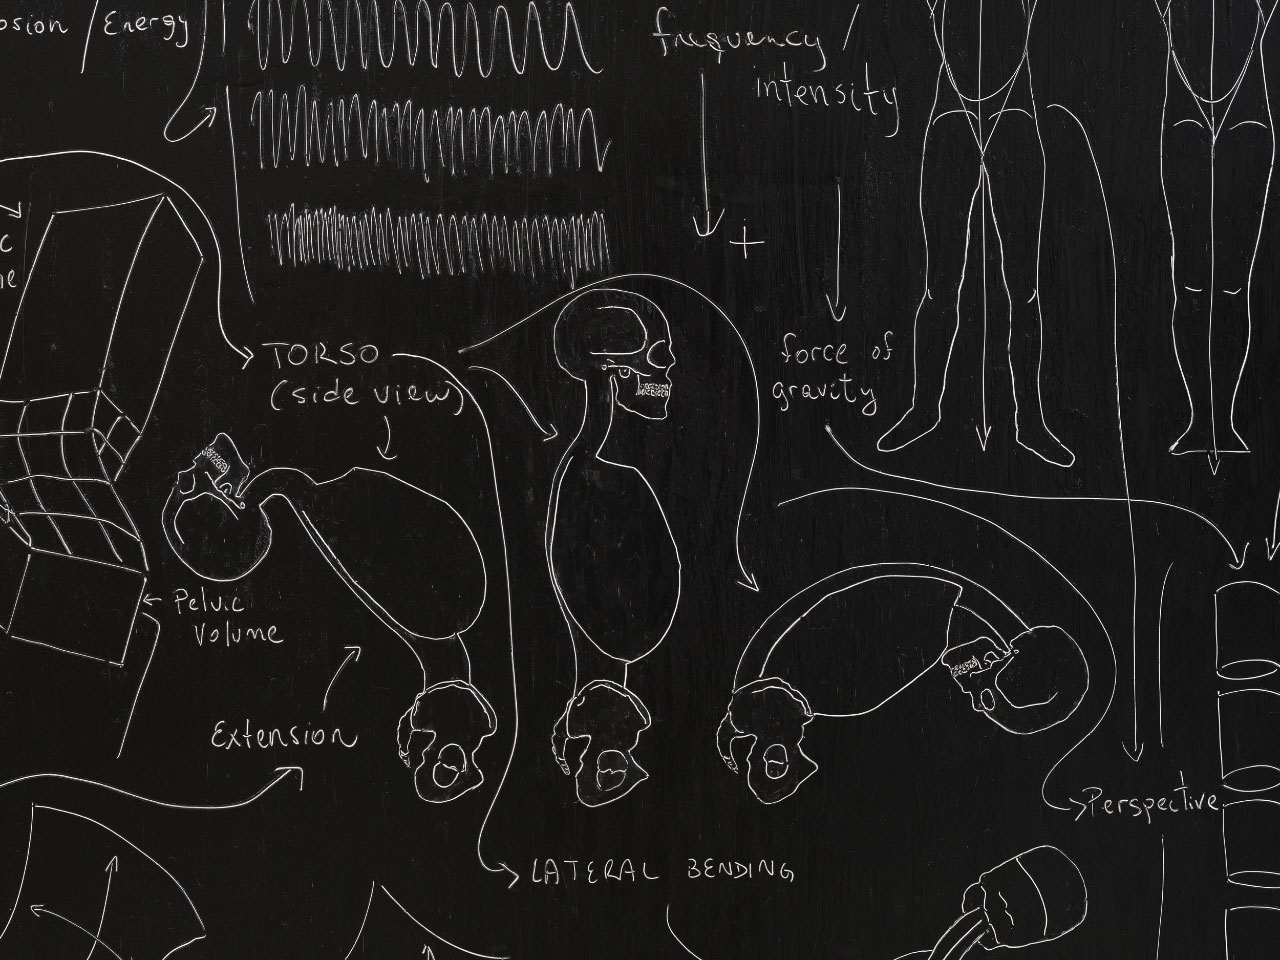 Energy
frequency /
intensity
TORSO
(side view)
force of
gravity
Pelvic
Volume
Extension
Perspective
LATERAL BENDING